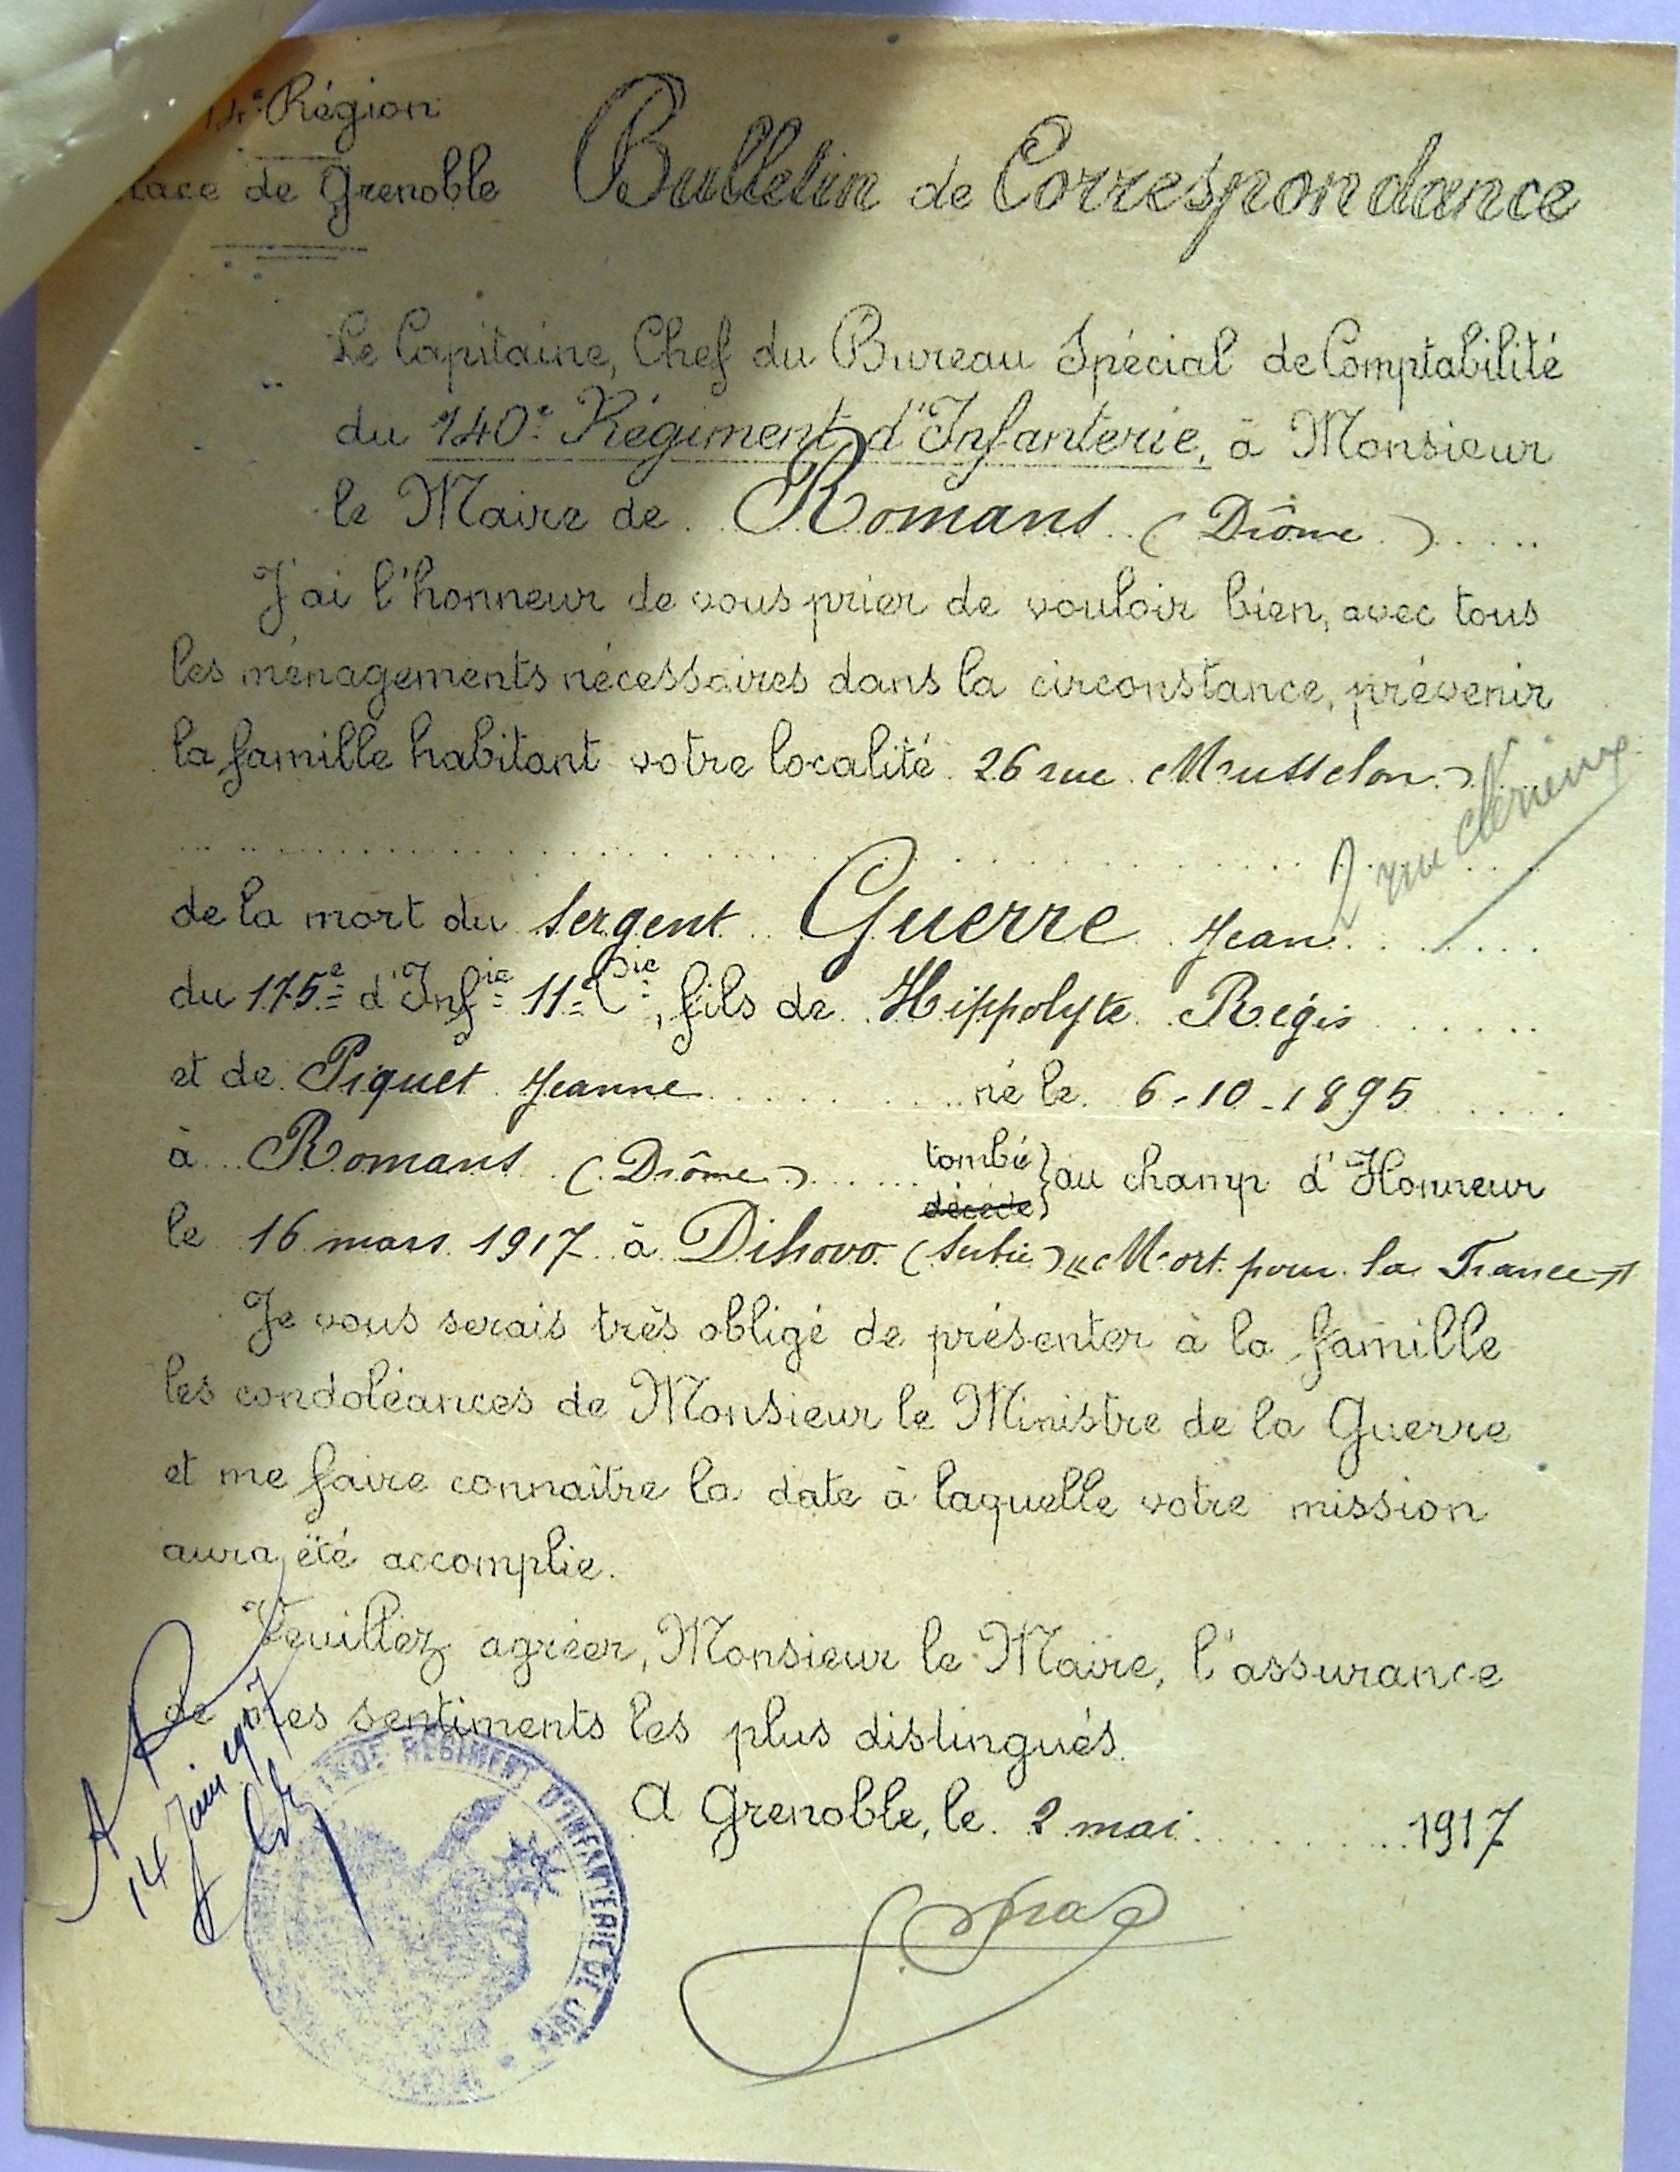 14e Région
lace de Grenoble
Bulletin de Correspondance
Le Capitaine, Chef du Bureau Spécial de Comptabilité
du 140e Régiment d'Infanterie, à Monsieur
le Maire de Romans (Drôme)
J'ai l'honneur de vous prier de vouloir bien, avec tous
les ménagements nécessaires dans la circonstance, prévenir
la famille habitant votre localité 26 rue Musselon
2 rue Clérieux
de la mort du Sergent Guerre Jean
du 175e d'Infie 11e Cie, fils de Hippolyte Régis
et de Piquet Jeanne né le 6-10-1895
à Romans (Drôme) tombé décédé } au champ d'Honneur
le 16 mars 1917 à Dihovo (Serbie) "Mort pour la France"
Je vous serais très obligé de présenter à la famille
les condoléances de Monsieur le Ministre de la Guerre
et me faire connaître la date à laquelle votre mission
aura été accomplie.
Veuillez agréer, Monsieur le Maire, l'assurance
de mes sentiments les plus distingués.
A Grenoble, le 2 mai 1917
A R
14 Juin 1917
140E REGIMENT D'INFANTERIE DE